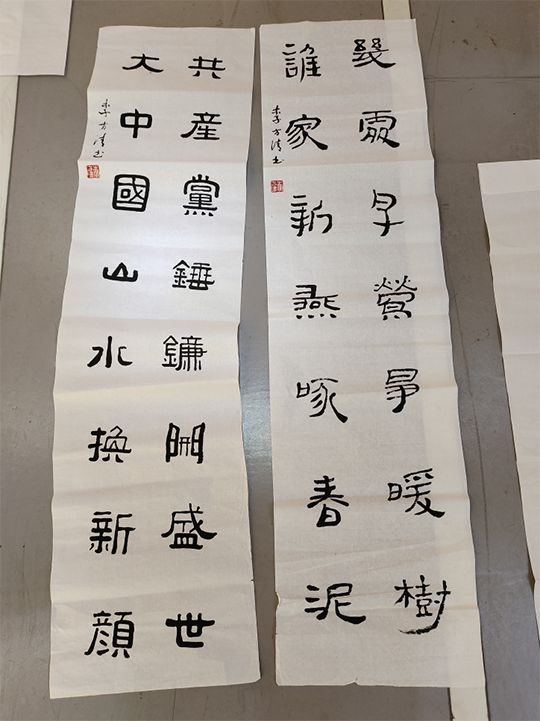 幾處早鶯爭暖樹
誰家新燕啄春泥
李方清书
共産黨錘鐮開盛世
大中國山水換新顔
李方清书